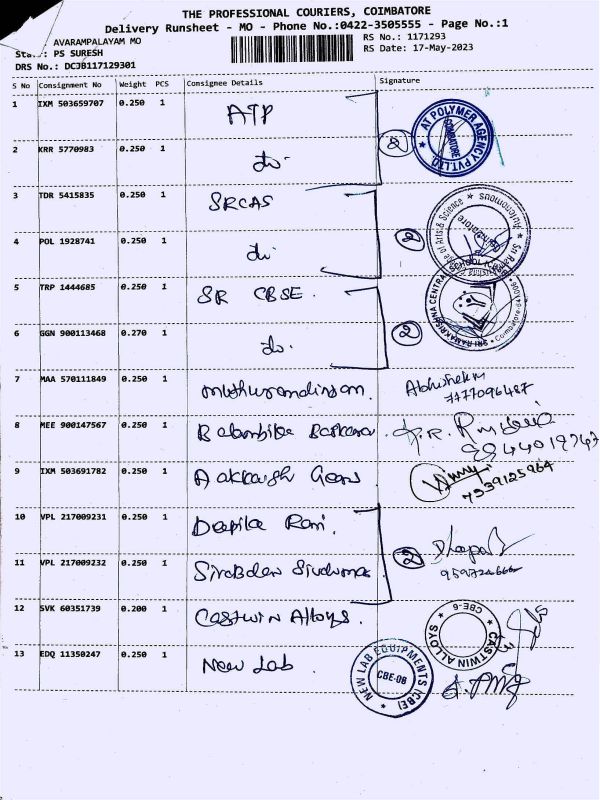 THE PROFESSIONAL COURIERS, COIMBATORE
Delivery Runsheet - MO - Phone No.:0422-3505555 - Page No.:1
AVARAMPALAYAM MO
RS No.: 1171293
PS SURESH
RS Date: 17-May-2023
DRS No.: DCJB117129301
S No Consignment No Weight PCS Consignee Details Signature
1 IXM 503659707 0.250 1 ATP
2 KRR 5770983 0.250 1 do. 2
AT POLYMER AGENCY PVT.LTD COIMBATORE
3 TDR 5415835 0.250 1 SRCAS
4 POL 1928741 0.250 1 do. 2
of Arts & Science Coimbatore
5 TRP 1444685 0.250 1 SR CBSE.
6 GGN 900113468 0.270 1 do. 2
SRI RAMAKRISHNA CENTRAL SCHOOL
7 MAA 570111849 0.250 1 Abhishek
7177096487
8 MEE 900147567 0.250 1
9 IXM 503691782 0.250 1
7339125964
10 VPL 217009231 0.250 1 Deepika Rani.
11 VPL 217009232 0.250 1 2
12 SVK 60351739 0.200 1 Castwin Alloys.
CASTWIN ALLOYS CBE-6
13 EDQ 11350247 0.250 1 New Lab.
NEW LAB EQUIPMENTS (CBE) CBE-08